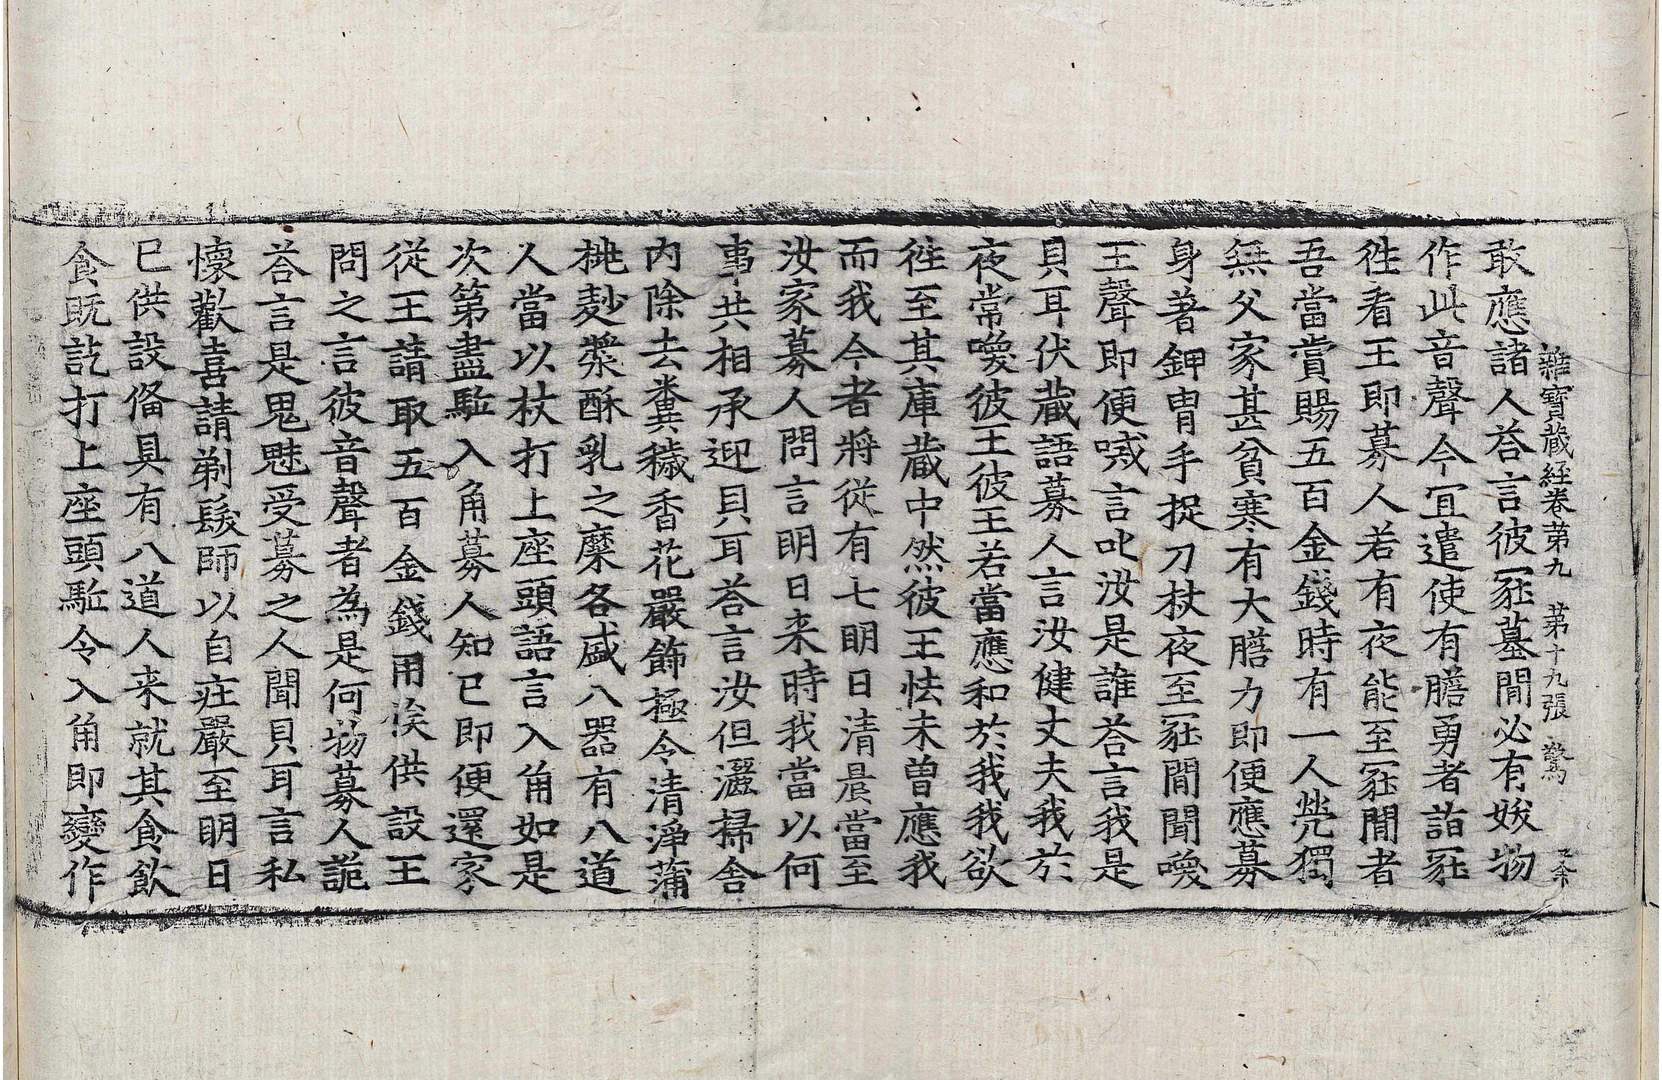 雜寶蔵経卷苐九　苐十九張　驚
敢應諸人荅言彼冡墓閒必有妖物
作此音聲今冝遣使有膽勇者詣冡
徃看王即募人若有夜能至冡閒者
吾當賞賜五百金錢時有一人煢獨
無父家甚貧寒有大膽力即便應募
身著鉀冑手捉刀杖夜至冡閒聞喚
王聲即便喊言叱汝是誰荅言我是
貝耳伏蔵語募人言汝健丈夫我於
夜常喚彼王彼王若當應和於我我欲
徃至其庫蔵中然彼王怯未曽應我
而我今者將從有七明日清晨當至
汝家募人問言明日来時我當以何
事共相承迎貝耳荅言汝但灑掃舍
內除去糞穢香花嚴飾極令清淨蒲
桃麨漿酥乳之糜各盛八器有八道
人當以杖打上座頭語言入角如是
次第盡駈入角募人知已即便還家
從王請取五百金錢用俟供設王
問之言彼音聲者為是何物募人詭
荅言是鬼魅受募之人聞貝耳言私
懷歡喜請剃髮師以自莊嚴至明日
已供設俻具有八道人来就其食飲
食既訖打上座頭駈令入角即變作